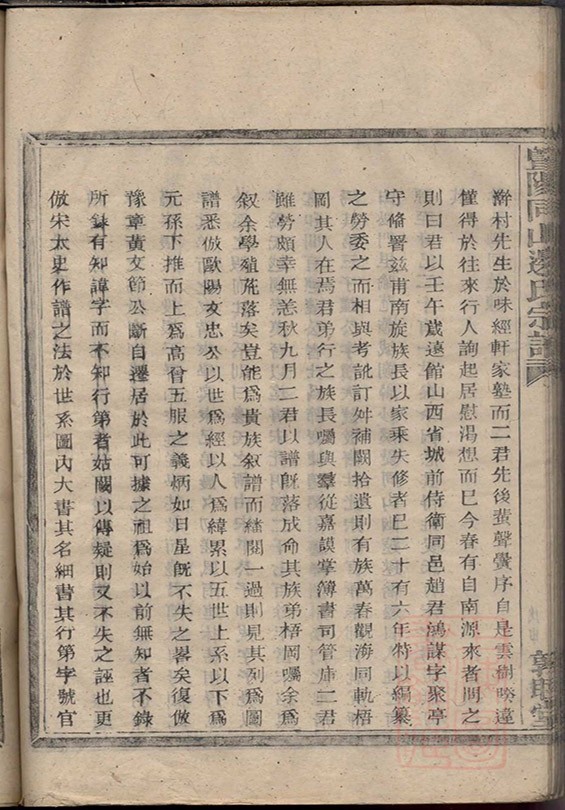 暨陽同山邊氏宗譜
敦睦堂
澣村先生於味經軒家塾而二君先後蜚聲黌序自是雲樹暌違
僅得於往來行人詢起居慰渴想而已今春有自南源來者問之
則曰君以壬午歲遠館山西省城前侍衞同邑趙君鴻謀字聚亭
守俻署兹甫南旋族長以家乘失修者已二十有六年特以編纂
之勞委之而相與考訛訂舛補闕拾遺則有族萬春觀海同軌梧
岡其人在焉君弟行之族長囑與羣從嘉謨掌簿書司管庫二君
雖勞頗幸無恙秋九月二君以譜旣落成命其族弟梧岡囑余爲
叙余學殖荒落矣豈能爲貴族叙譜而繙閱一過則見其列爲圖
譜悉倣歐陽文忠公以世爲經以人爲緯累以五世上系以下爲
元孫下推而上爲高曾五服之義炳如日星旣不失之畧矣復倣
豫章黃文節公斷自遷居於此可據之祖爲始以前無知者不錄
所錄有知諱字而不知行第者姑闕以傳疑則又不失之誣也更
倣宋太史作譜之法於世系圖內大書其名細書其行第字號官